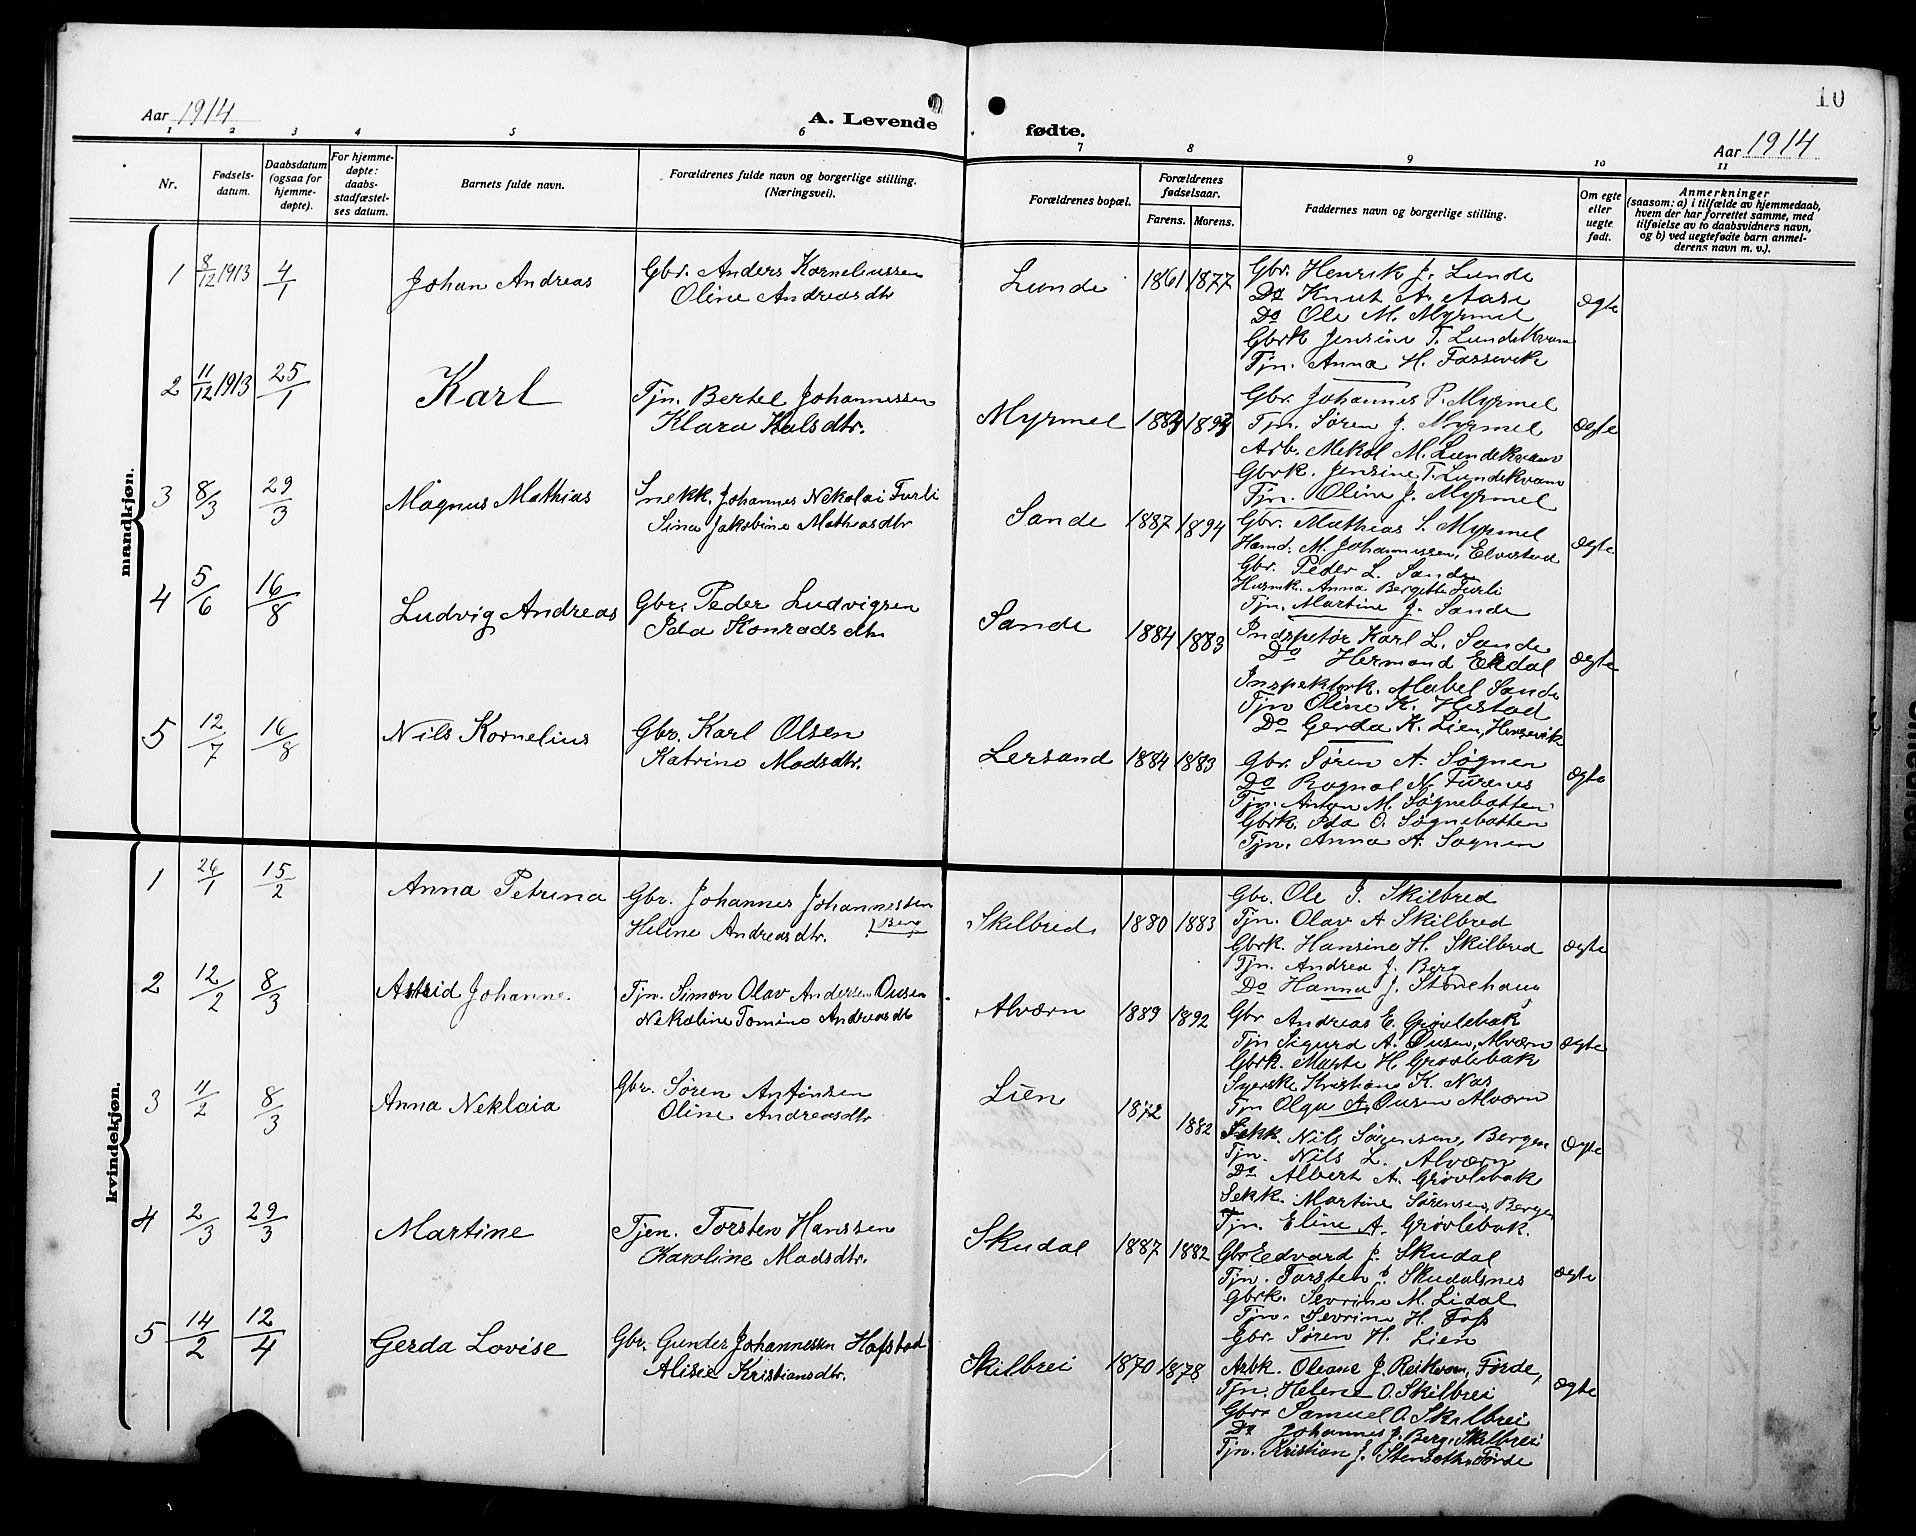 10
Aar 1914
A. Levende fødte.
Aar 1914
1 2 3 4 5 6 7 8 9 10 11
Nr.
Fødsels-
datum.
Daabsdatum
(ogsaa for
hjemme-
døpte).
For hjemme-
døpte:
daabs-
stadfæstel-
ses datum.
Barnets fulde navn.
Forældrenes fulde navn og borgerlige stilling.
(Næringsvei).
Forældrenes bopæl.
Forældrenes
fødselsaar.
Farens. Morens.
Faddernes navn og borgerlige stilling.
Om egte
eller
uegte
født.
Anmerkninger
(saasom: a) i tilfælde av hjemmedaab,
hvem der har forrettet samme, med
tilføielse av to daabsvidners navn,
og b) ved uegtefødte barn anmel-
derens navn m. v.).
mandkjøn.
1 8/12 1913 4/1 Johan Andreas
Gbr. Anders Korneliussen
Oline Andreasdtr
Lunde 1861 1877
Gbr. Henrik J. Lunde
Do Knut A. Aase
Do Ole M. Myrmel
Gbrk Jensine T. Lundekvam
Tjn. Anna H. Fossevik
Ægte
2 11/12 1913 25/1 Karl
Tjn. Bertel Johannessen
Klara Kalsdtr.
Myrmel 1883 1893
Gbr. Johannes P. Myrmel
Tjn. Søren J. Myrmel
Arb. Mekal M. Lundekvam
Gbrk. Jensine T. Lundekvam
Tjn. Oline J. Myrmel
Ægte
3 8/3 29/3 Magnus Mathias
Snekk. Johannes Nekolai Furli
Sina Jakobine Mathiasdtr
Sande 1887 1894
Gbr. Mathias S. Myrmel
Hand. M. Johannessen, Elvestad
Gbr. Peder L. Sande
Husmk. Anna Bergitte Furli
Tjn. Martine J. Sande
Ægte
4 5/6 16/8 Ludvig Andreas
Gbr. Peder Ludvigsen
Ida Konradsdtr
Sande 1884 1883
Indspetør Karl L. Sande
Do Hermand Ekdal
Inspektørk. Mabel Sande
Tjn Oline K. Hestad
Do Gerda K. Lien, Hersevik
Ægte
5 12/7 16/8 Nils Kornelius
Gbr. Karl Olsen
Katrine Madsdtr.
Lersand 1884 1883
Gbr. Søren A. Søgnen
Do Ragnal N. Furenes
Tjn. Anton M. Søgnebotten
Gbrk. Ida O. Søgnebotten
Tjn. Anna A. Søgnen
Ægte
kvindekjøn.
1 26/1 15/2 Anna Petrina
Gbr. Johannes Johannessen
Helene Andreasdtr. Berg
Skilbred 1880 1883
Gbr. Ole J. Skilbred
Tjn. Olav A Skilbred
Gbrk. Hansine H. Skilbred
Tjn. Andrea J. Berg
Do Hanna J. Storehaug
Ægte
2 12/2 8/3 Astrid Johanne.
Tjn. Simon Olav Andersen Ousen
Nekoline Tomine Andreasdtr
Alværn 1889 1892
Gbr Andreas E. Grøvlebak
Tjn Sigurd A. Ousen, Alværn
Gbrk. Marta H Grøvlebak
Syerske Kristiane K. Nas
Tjn Olga A. Ousen Alværn
Ægte
3 11/2 8/3 Anna Neklaia
Gbr. Søren Antonsen
Oline Andreasdtr
Lien 1872 1882
Sekk. Nils Sørensen, Bergen
Tjn. Nils L. Alværn
Do Albert A. Grøvlebak
Sekk. Martine Sørensen, Bergen
Tjn. Eline A. Grøvlebak.
Ægte
4 2/3 29/3 Martine
Tjen. Torsten Hanssen
Karoline Madsdtr.
Skudal 1887 1882
Gbr Eedvard J. Skudal
Tjn. Torsten J. Skudalsnes
Gbrk. Sevrine M. Lidal
Tjn. Sevrine H. Foss
Gbr. Søren H. Lien
Ægte
5 14/2 12/4 Gerda Lovise
Gbr. Gunder Johannessen Hafstad
Alisie Kristiansdtr.
Skilbrei 1870 1878
Arbk. Oleane J. Reikvam, Førde,
Tjn. Helene O. Skilbrei
Gbr. Samuel O. Skilbrei
Do Johannes J. Berg, Skilbrei
Tjn. Kristian J. Stenseth, Førde
Ægte